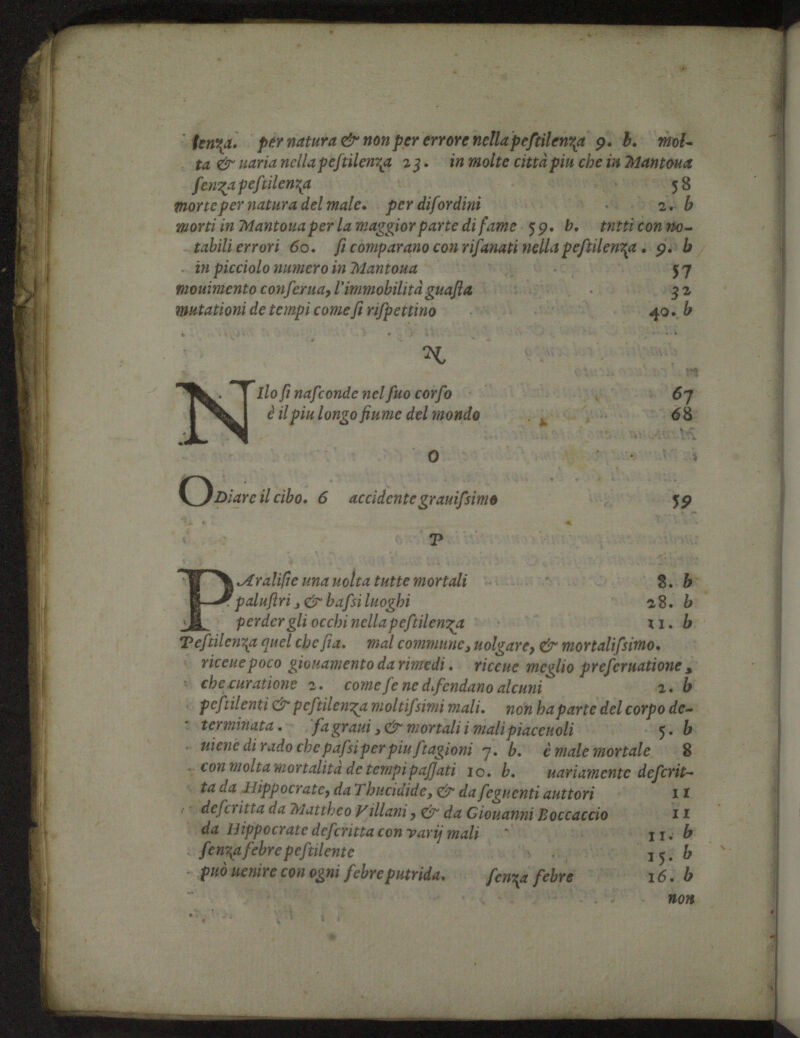 ſenza. per natura & non per errore nella peſtilenza 9. b. mol-
ta & uaria nella peſtilenza 23. in molte città piu che in Mantoua
ſenza peſtilenza 58
morte per natura del male. per diſordini 2. b
morti in Mantoua per la maggior parte di fame 59. b. tntti con no-
tabili errori 60. ſi comparano con riſanati nella peſtilenza. 9. b
in picciolo numero in Mantoua 57
mouimento conſerua, l'immobilità guaſta 32
mutationi de tempi come ſi riſpettino 40. b
N
NIlo ſi naſconde nel ſuo corſo 67
è il piu longo fiume del mondo 68
O
ODiare il cibo. 6 accidente grauiſsimo 59
P
PAraliſie una uolta tutte mortali 8. b
paluſtri, & baſsi luoghi 28. b
perder gli occhi nella peſtilenza 11. b
Peſtilenza quel che ſia. mal commune, uolgare, & mortaliſsimo.
riceue poco giouamento da rimedi. riceue meglio preſeruatione,
che curatione 2. come ſe ne difendano alcuni 2. b
peſtilenti & peſtilenza moltiſsimi mali. non ha parte del corpo de-
terminata. fa graui, & mortali i mali piaceuoli 5. b
uiene di rado che paſsi per piu ſtagioni 7. b. è male mortale 8
con molta mortalità de tempi paſſati 10. b. uariamente deſcrit-
ta da Hippocrate, da Thucidide, & da ſeguenti auttori 11
deſcritta da Mattheo Villani, & da Giouanni Boccaccio 11
da Hippocrate deſcritta con varij mali 11. b
ſenza febre peſtilente 15. b
può uenire con ogni febre putrida. ſenza febre 16. b
non